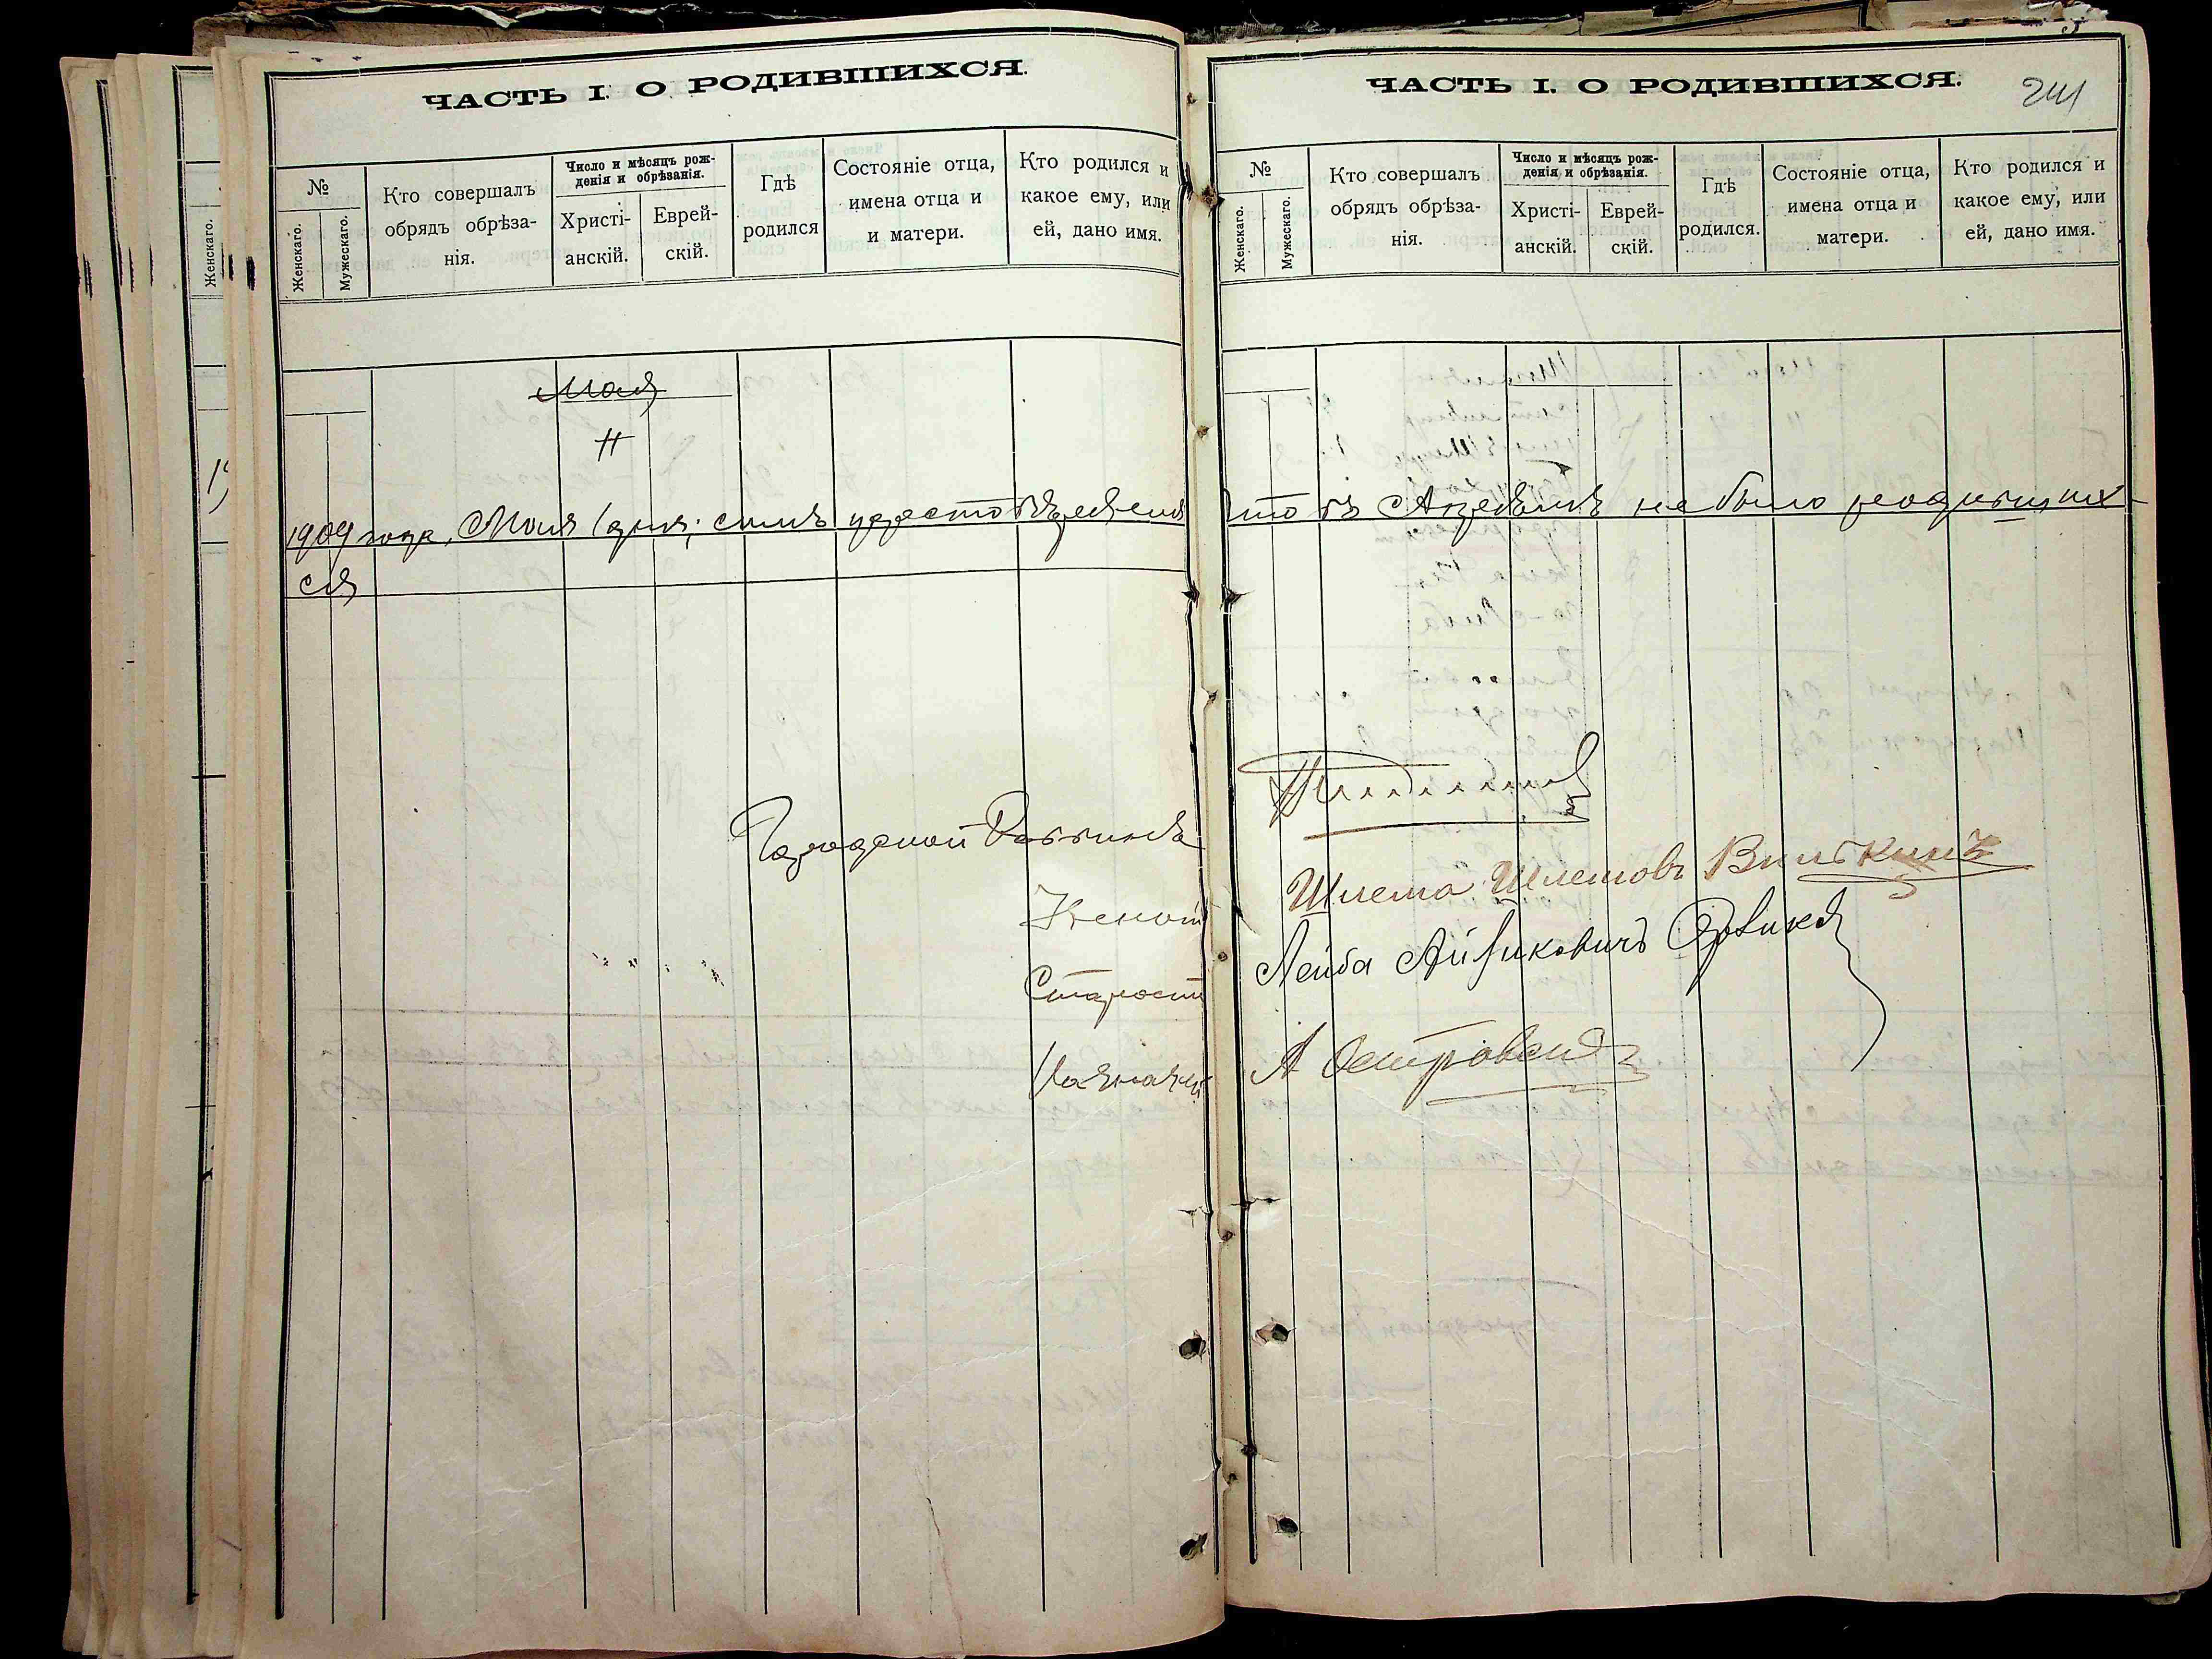 ЧАСТЬ I. О РОДИВШИХСЯ.
№
Женскаго.
Мужескаго.
Кто совершалъ
обрядъ обрѣза-
нія.
Число и мѣсяцъ рож-
денія и обрѣзанія.
Христі-
анскій.
Еврей-
скій.
Гдѣ
родился
Состояніе отца,
имена отца и
и матери.
Кто родился и
какое ему, или
ей, дано имя.
Мая
1909 года, Мая 1 дня; симъ удостовѣряемъ
ся
Городской Раввинъ
Ученый
Староста
Казначей
Женскаго.
ЧАСТЬ I. О РОДИВШИХСЯ.
241
№
Женскаго.
Мужескаго.
Кто совершалъ
обрядъ обрѣза-
нія.
Число и мѣсяцъ рож-
денія и обрѣзанія.
Христі-
анскій.
Еврей-
скій.
Гдѣ
родился.
Состояніе отца,
имена отца и
матери.
Кто родился и
какое ему, или
ей, дано имя.
что въ Апрѣлѣ не было родивших-
Шлема Шлемовъ Вилькинъ
Лейба Айзиковичъ
А Островск